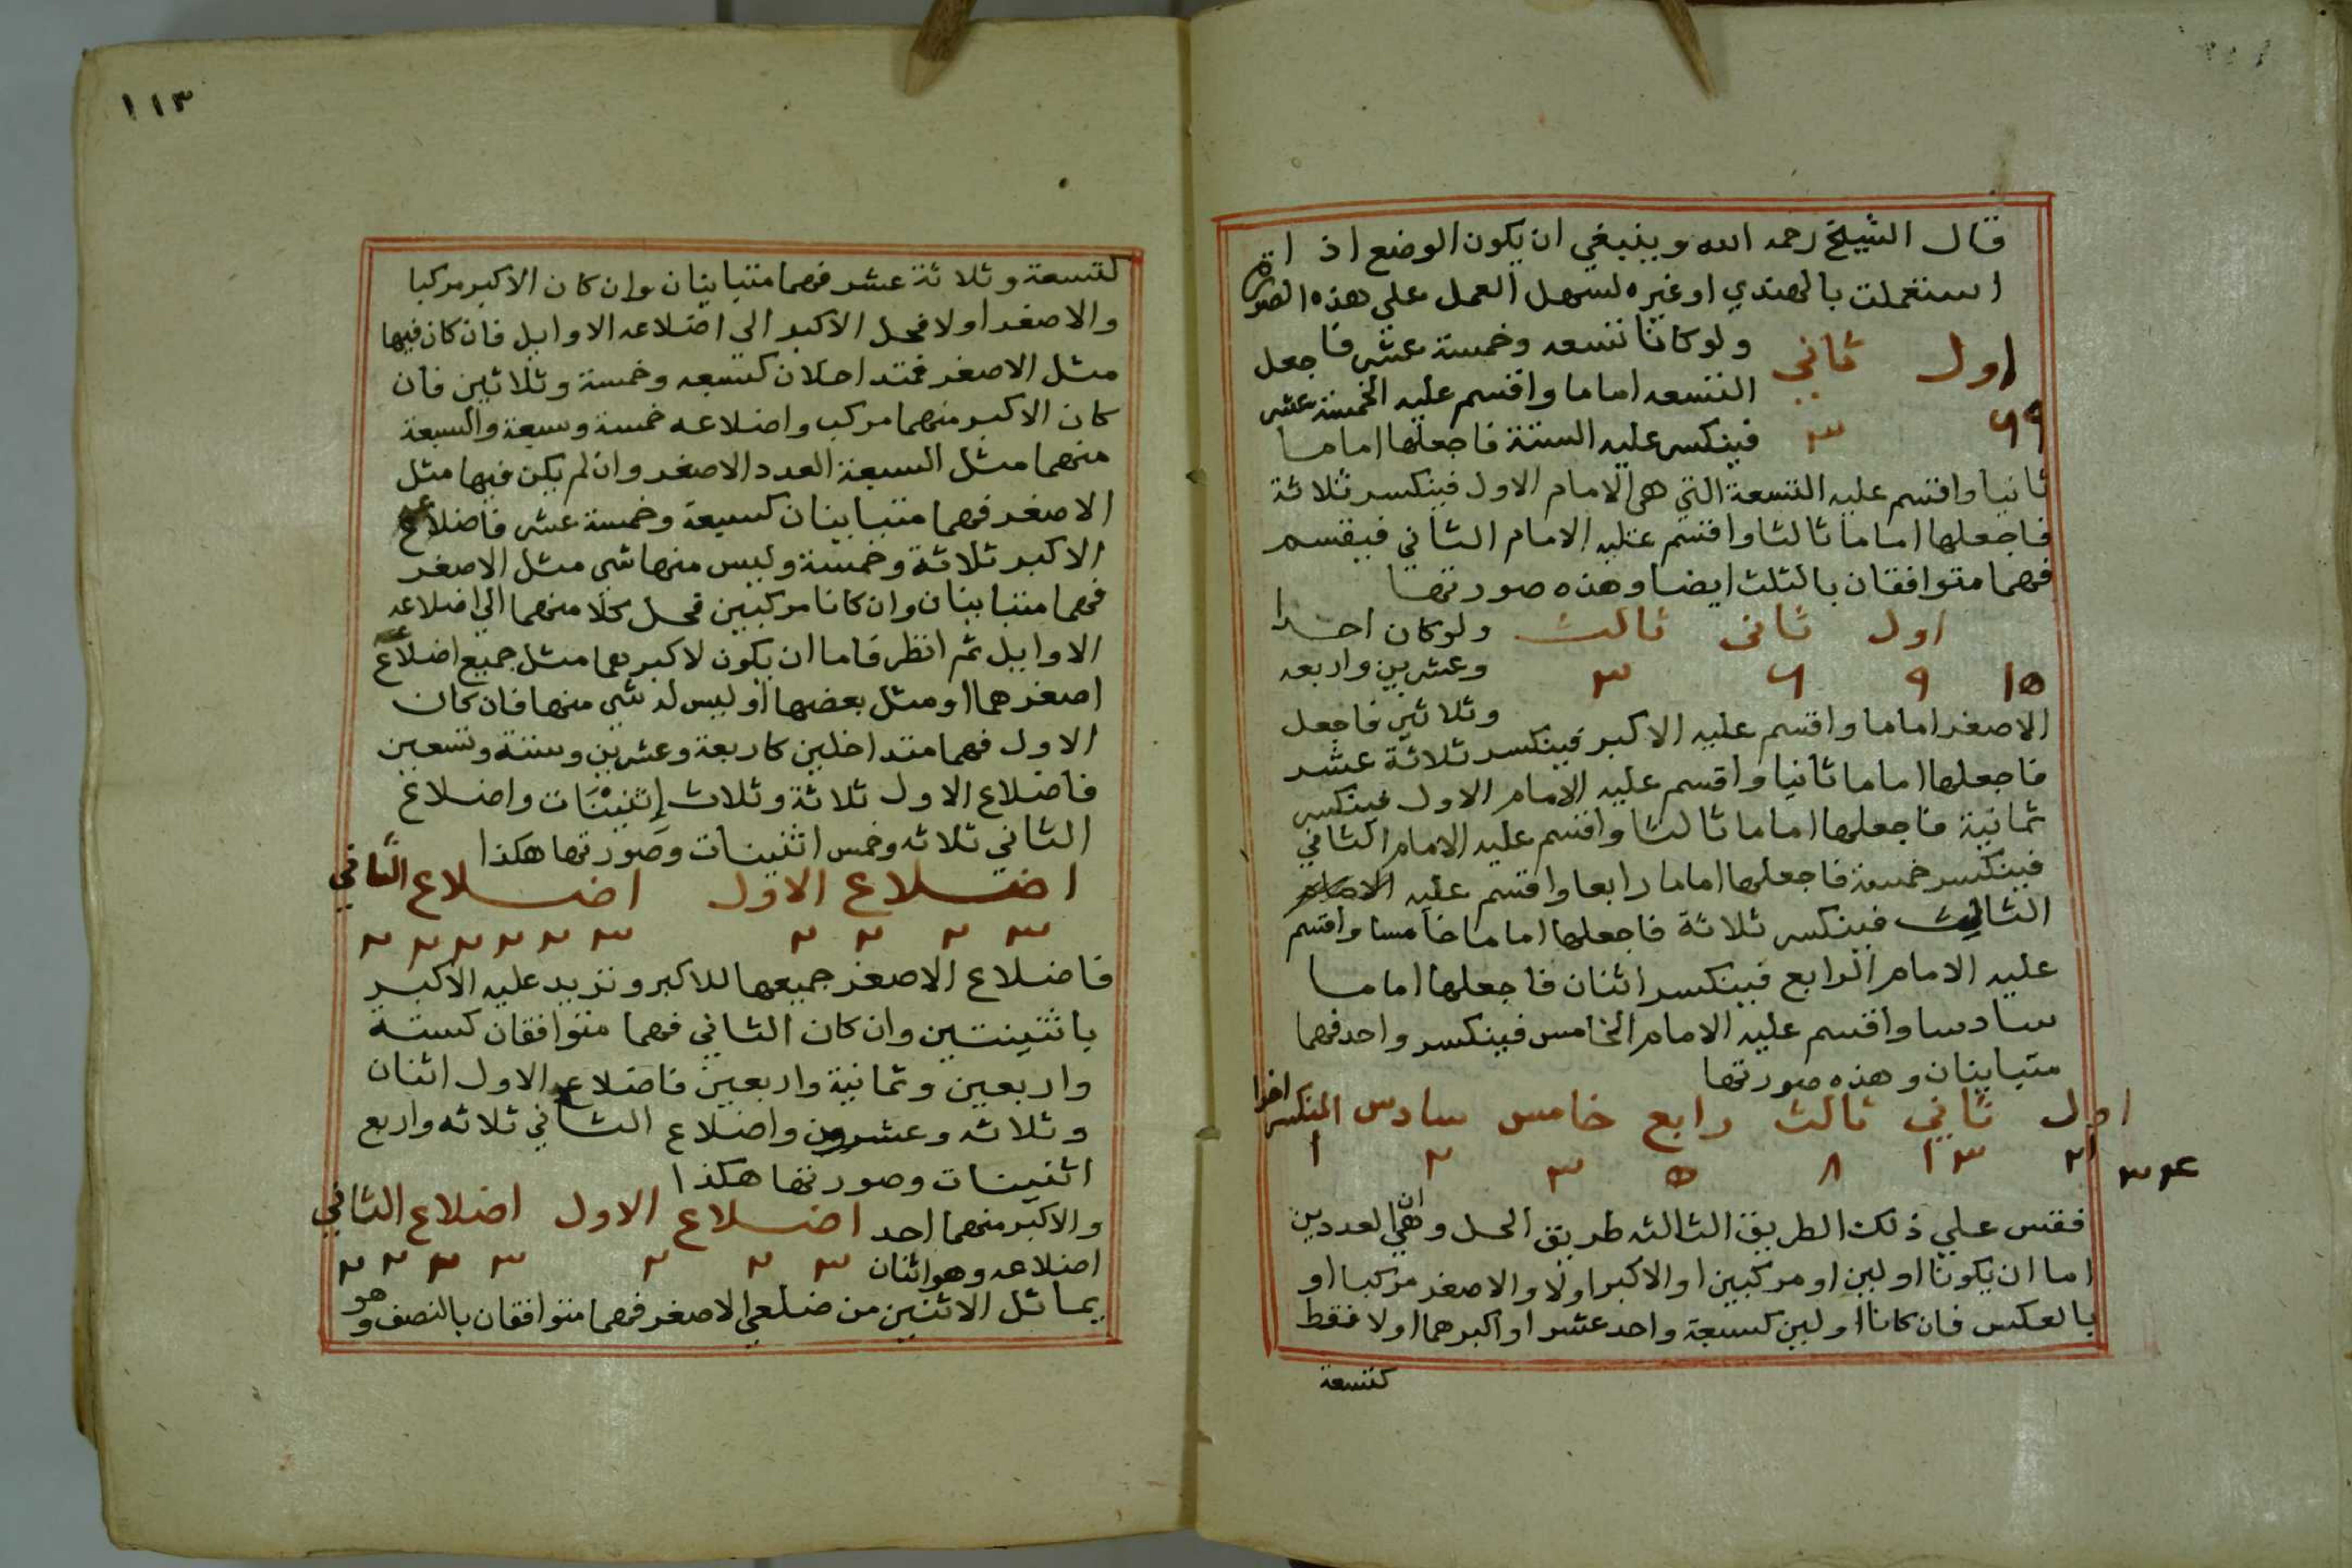 قال الشيخ رحمه الله وينبغي ان يكون الوضع اذا
استعملت بالهندي او غيره لسهل العمل على هذه الصورة
اول ثاني ولو كانا تسعه وخمسة عشر فاجعل
التسعه اماما واقسم عليه الخمسة عشر
٩ ٦ ٣ فينكسر عليه الستة فاجعلها اماما
ثانيا واقسم عليه التسعة التي هي الامام الاول فينكسر ثلاثة
فاجعلها اماما ثالثا واقسم عليه الامام الثاني فيقسم
فهما متوافقان بالثلث ايضا وهذه صورتها
اول ثانى ثالث ولو كان احدا
وعشرين واربعه
١٥ ٩ ٦ ٣
وثلاثين فاجعل
الاصغر اماما واقسم عليه الاكبر فينكسر ثلاثة عشر
فاجعلها اماما ثانيا واقسم عليه الامام الاول فينكسر
ثمانية فاجعلها اماما ثالثا واقسم عليه الامام الثاني
فينكسر خمسة فاجعلها اماما رابعا واقسم عليه الامام
الثالث فينكسر ثلاثة فاجعلها اماما خامسا واقسم
عليه الامام الرابع فينكسر اثنان فاجعلها اماما
سادسا واقسم عليه الامام الخامس فينكسر واحد فهما
متباينان وهذه صورتها
اول ثاني ثالث رابع خامس سادس المنكسر اخرا
٣٤ ٢١ ١٣ ٨ ٥ ٣ ٢ ١
فقس علي ذلك الطريق الثالثه طريق الحل وهي ان العددين
اما ان يكونا اولين او مركبين او الاكبر اولا والاصغر مركبا او
بالعكس فان كانا اولين كسبعة واحد عشر او اكبرهما اولا فقط
كتسعة
١١٣
كتسعة وثلاثة عشر فهما متباينان وان كان الاكبر مركبا
والاصغر اولا فحل الاكبر الي اضلاعه الاوايل فان كان فيها
مثل الاصغر فمتداخلان كسبعه وخمسة وثلاثين فان
كان الاكبر منهما مركب واضلاعه خمسة وسبعة والسبعة
منهما مثل السبعة العدد الاصغر وان لم يكن فيها مثل
الاصغر فهما متباينان كسبعة وخمسة عشر فاضلاع
الاكبر ثلاثة وخمسة وليس منها شى مثل الاصغر
فهما متباينان وان كانا مركبين فحل كلا منهما الي اضلاعه
الاوايل ثم انظر فاما ان يكون لاكبرهما مثل جميع اضلاع
اصغرهما او مثل بعضها او ليس له شى منها فان كان
الاول فهما متداخلين كاربعة وعشرين وستة وتسعين
فاضلاع الاول ثلاثة وثلاث إثنينَات واضلاع
الثاني ثلاثه وخمس اثنينات وصورتها هكذا
اضلاع الاول اضلاع الثاني
٣ ٢ ٢ ٢ ٣ ٢ ٢ ٢ ٢ ٢
فاضلاع الاصغر جميعها للاكبر ونزيد عليه الاكبر
باثنينتين وان كان الثاني فهما متوافقان كستة
واربعين وثمانية واربعين فاضلاع الاول اثنان
وثلاثه وعشرون واضلاع الثاني ثلاثه واربع
اثنينات وصورتها هكذا
والاكبر منهما احد اضلاع الاول اضلاع الثاني
اضلاعه وهو اثنان ٣ ٢ ٢ ٣ ٢ ٢ ٢
يماثل الاثنين من ضلعي الاصغر فهما متوافقان بالنصف وهو